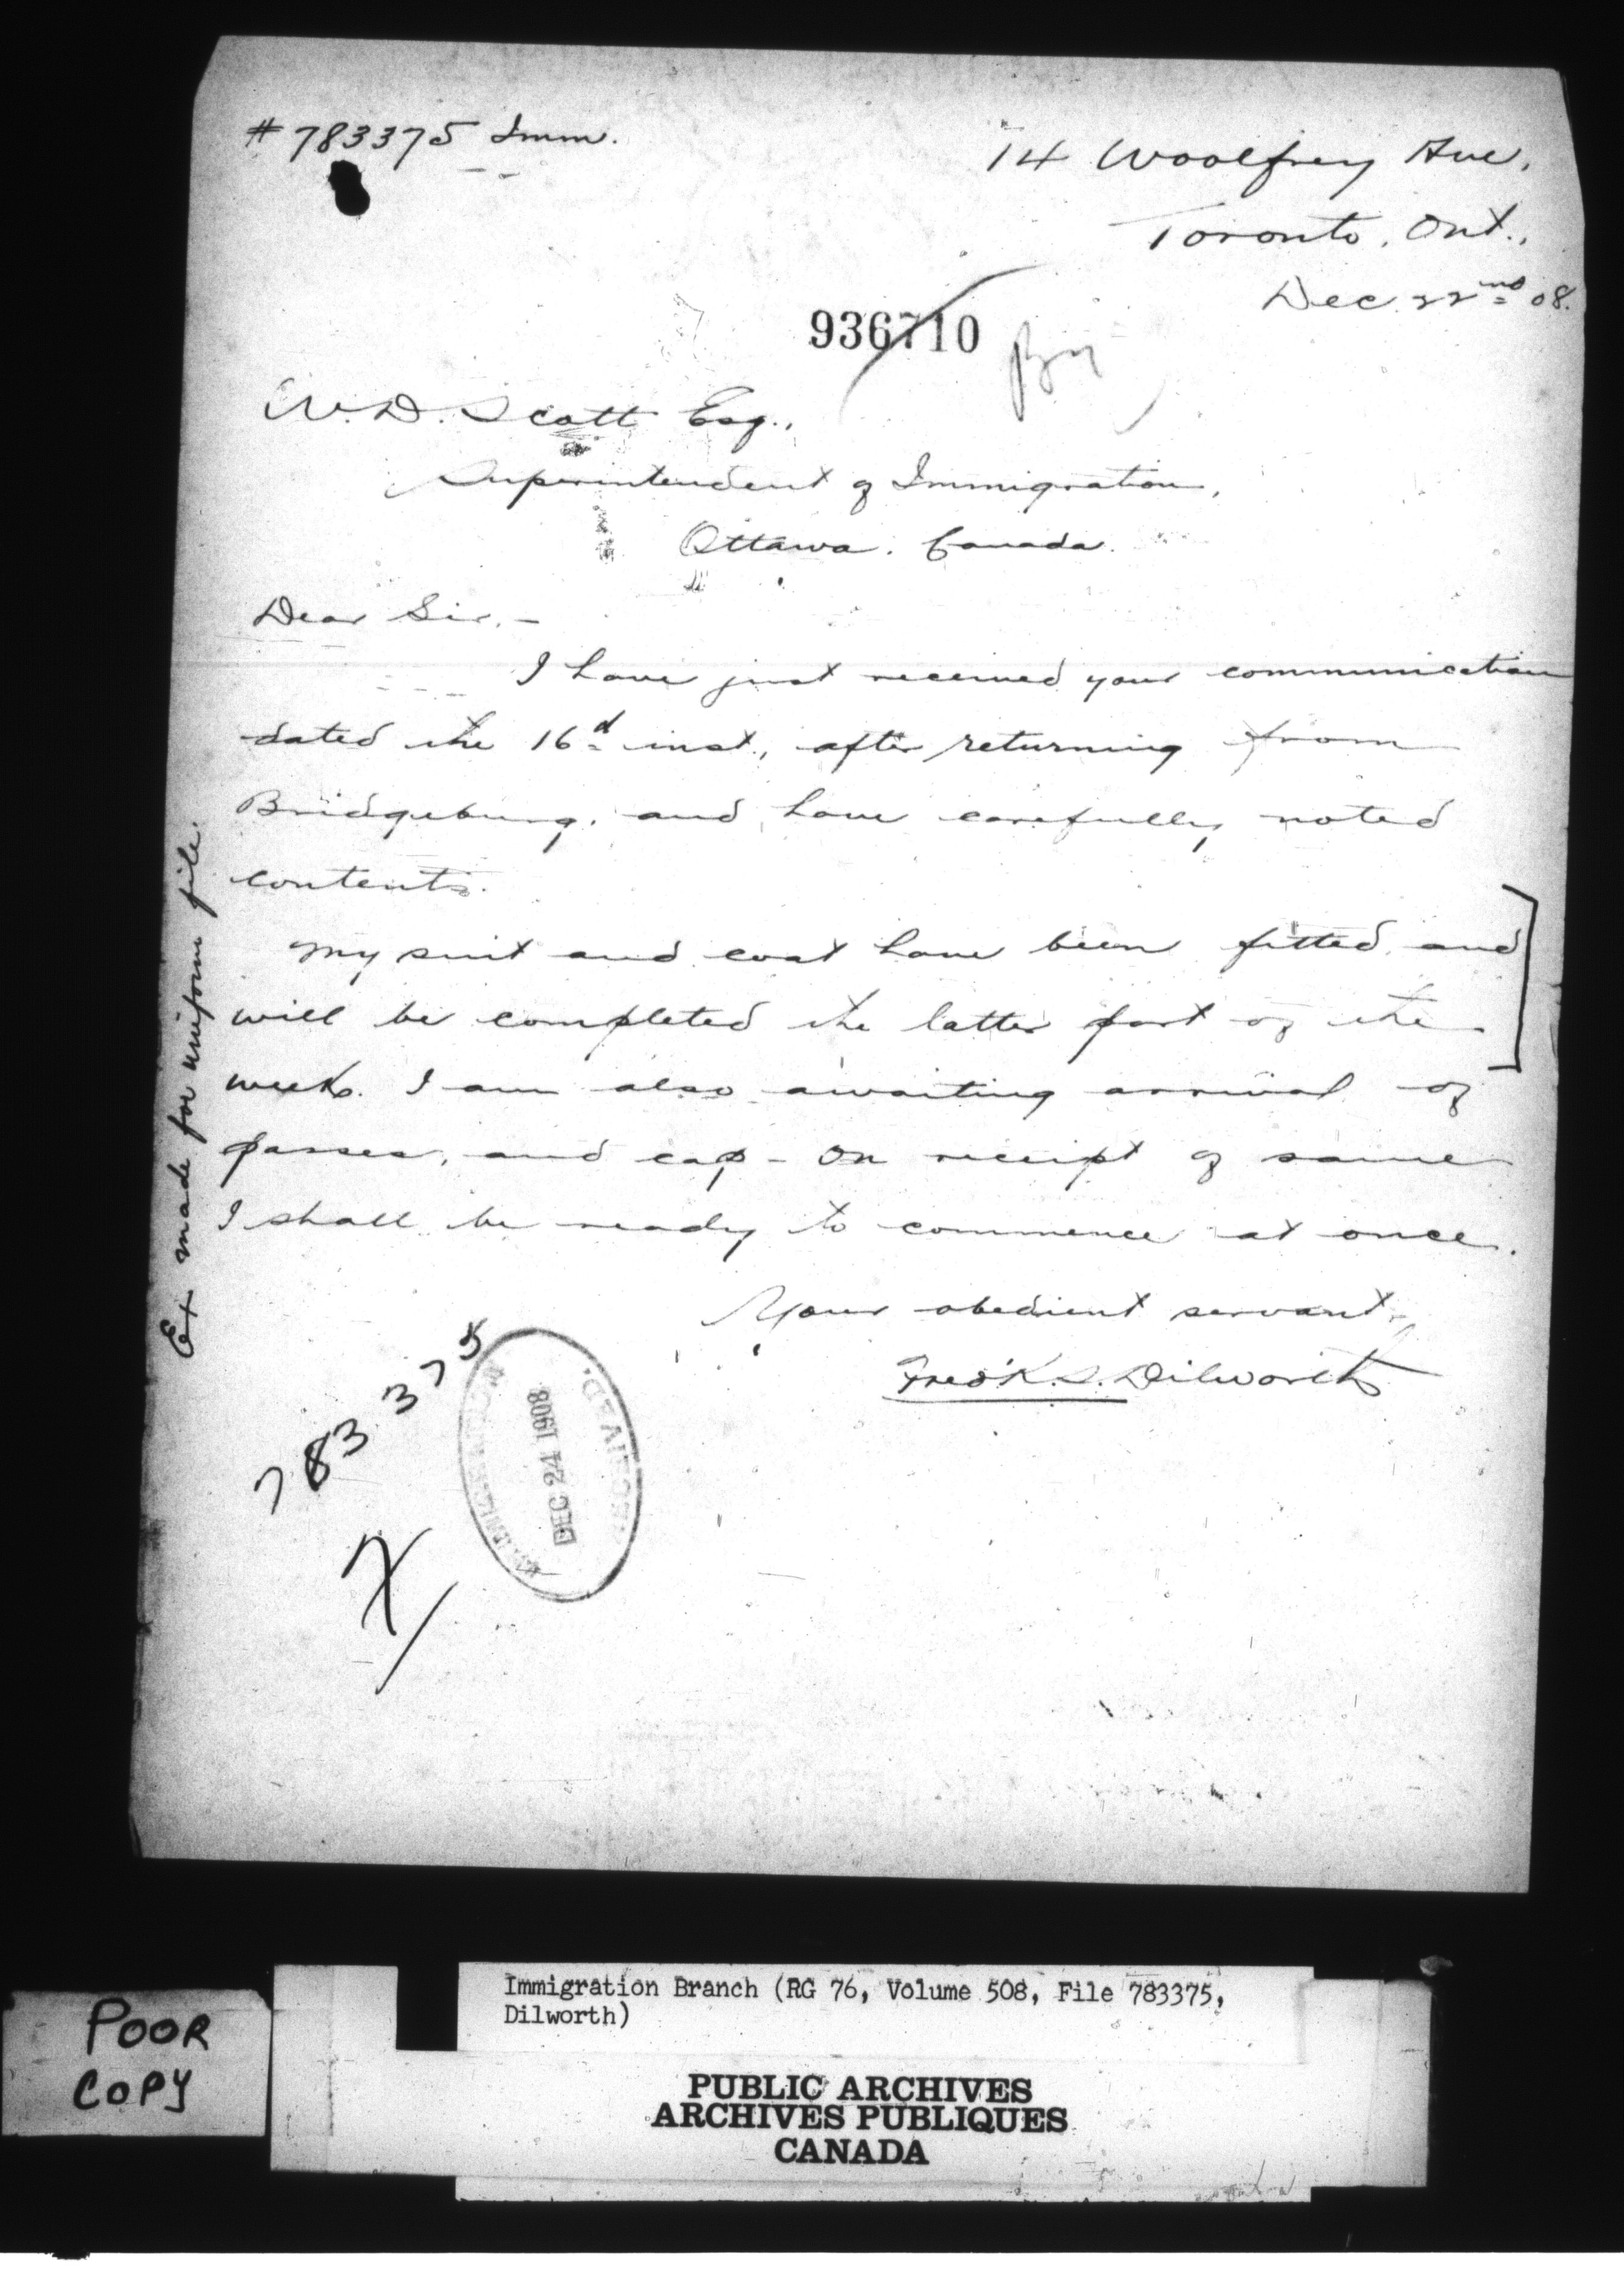 # 783375 Imm.
14 Woolfrey Ave,
Toronto, Ont.,
Dec. 22nd 08.
936710
W. D. Scott Esq.,
Superintendent of Immigration,
Ottawa. Canada.
Dear Sir,-
I have just received your communication
dated the 16d inst., after returning from
Bridgeburg, and have carefully noted
contents.
My suit and coat have been fitted, and
will be completed the latter part of the
week. I am also awaiting arrival of
passes, and cap - On receipt of same
I shall be ready to commence at once.
Your obedient servant,
Fred'K. S. Dilworth
Ex made for uniform file.
783375
RECEIVED.
DEC 24 1908
IMMIGRATION
Immigration Branch (RG 76, Volume 508, File 783375,
Dilworth)
POOR
COPY
PUBLIC ARCHIVES
ARCHIVES PUBLIQUES
CANADA